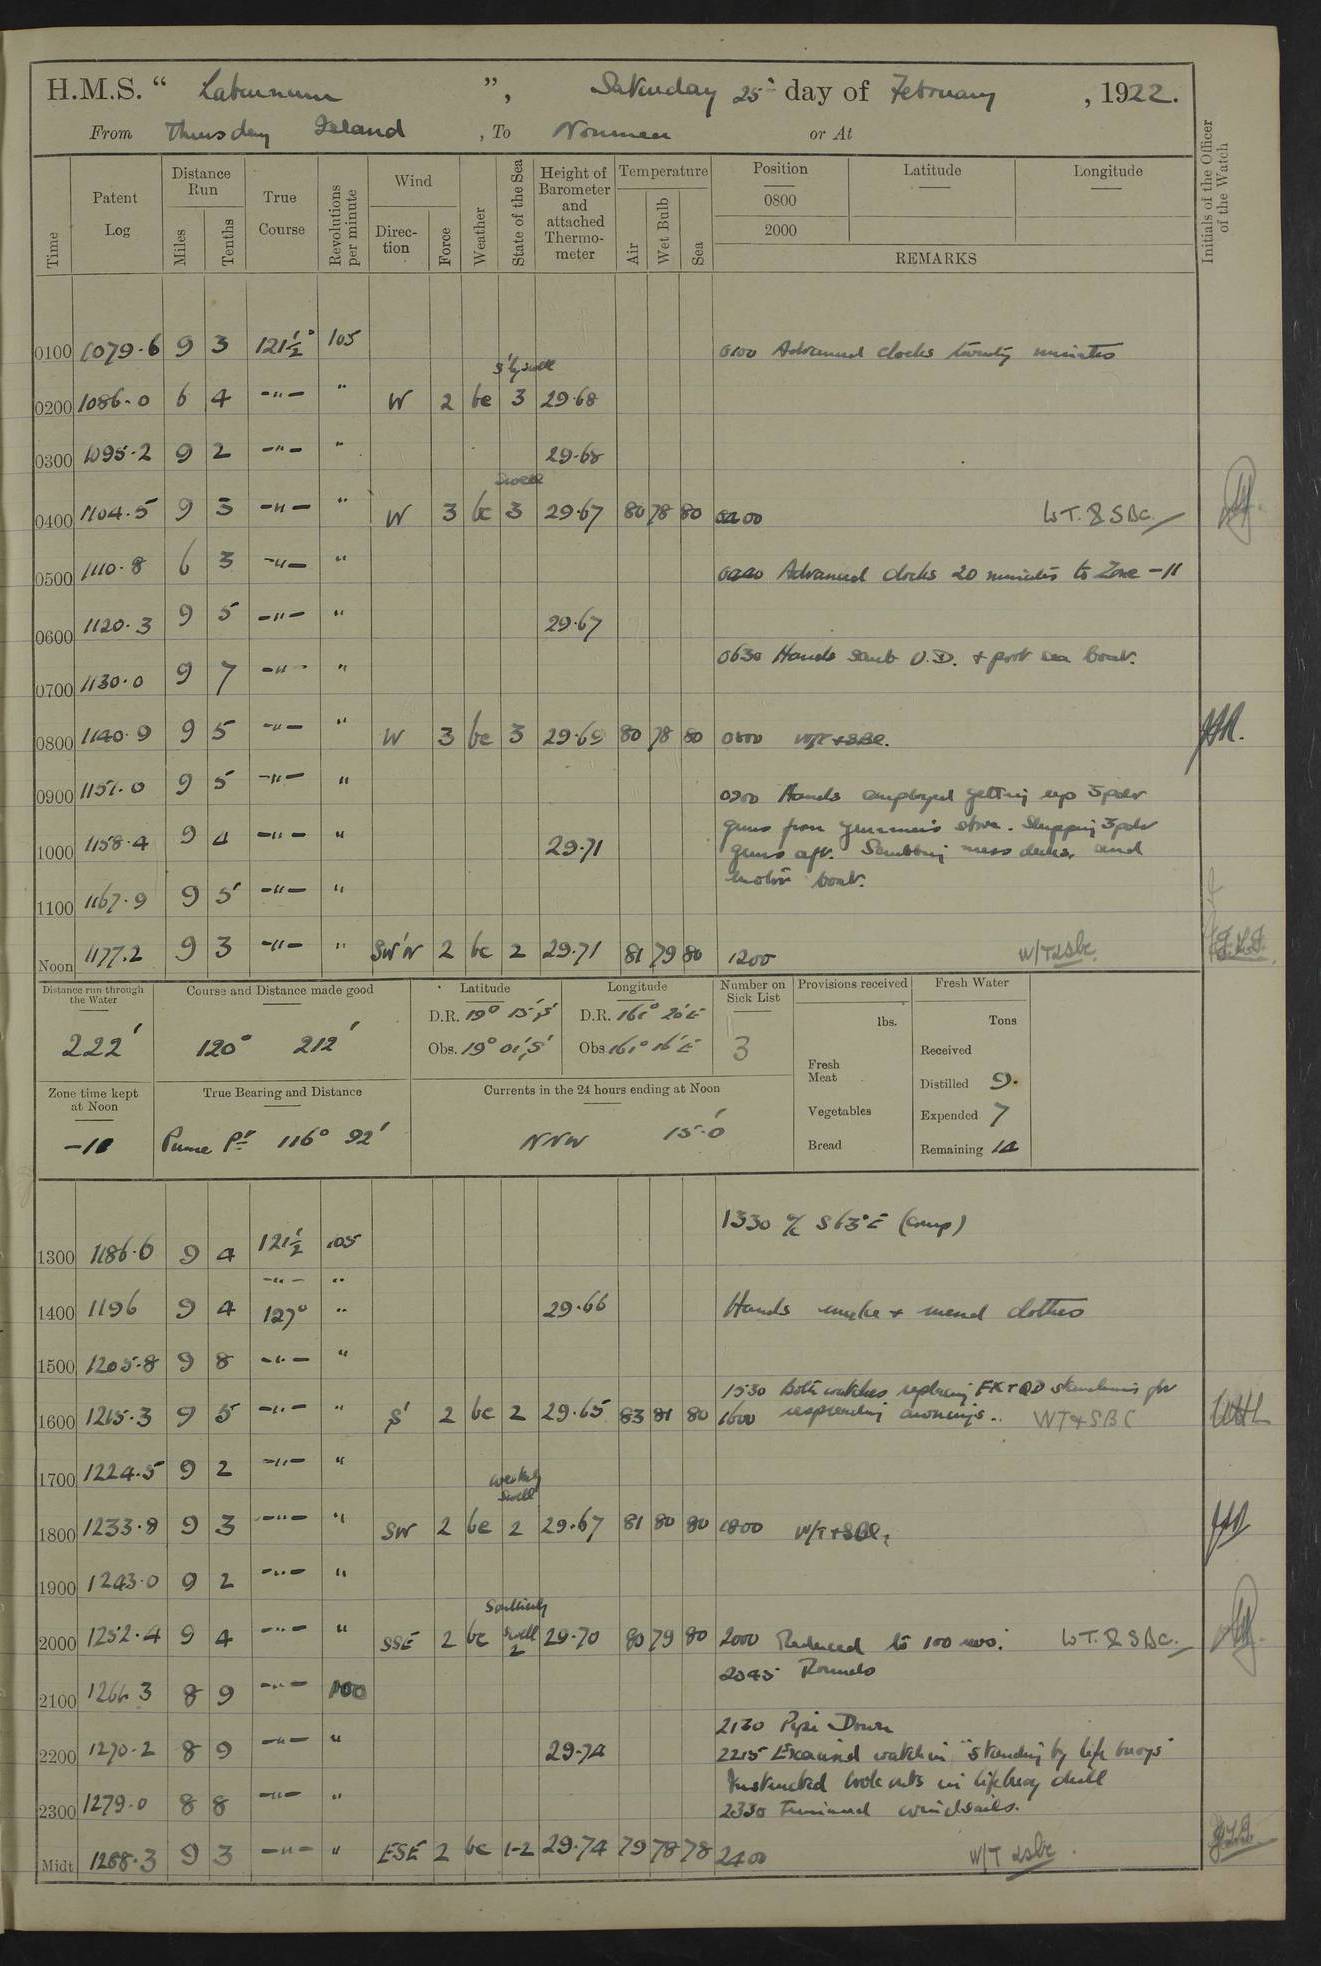 H.M.S. “ Laburnum ”, Saturday 25th day of February, 1922.
From Thursday Island, To Noumea or At
Time
Patent Log
Distance Run
Miles
Tenths
True Course
Revolutions per minute
Wind
Direction
Force
Weather
State of the Sea
Height of Barometer and attached Thermometer
Temperature
Air
Wet Bulb
Sea
Position
0800
2000
Latitude
Longitude
REMARKS
Initials of the Officer of the Watch
0100 1079.6 9 3 121½° 105 0100 Advanced clocks twenty minutes
S'ly swell
0200 1086.0 6 4 -"- " W 2 bc 3 29.68
0300 1095.2 9 2 -"- " 29.68
Swell
0400 1104.5 9 3 -"- " W 3 bc 3 29.67 80 78 80 0400 W.T. & SBC.
0500 1110.8 6 3 -"- " 0440 Advanced clocks 20 minutes to Zone -11
0600 1120.3 9 5 -"- " 29.67
0630 Hands scrub U.D. + port sea boat.
0700 1130.0 9 7 -"- "
0800 1140.9 9 5 -"- " W 3 bc 3 29.69 80 78 80 0800 W/T + SBC.
0900 1151.0 9 5 -"- " 0900 Hands employed getting up 3pdr
guns from gunner's store. Shipping 3pdr
1000 1158.4 9 4 -"- " 29.71 guns aft. Scrubbing mess decks, and
motor boat.
1100 1167.9 9 5 -"- "
Noon 1177.2 9 3 -"- " SW'W 2 bc 2 29.71 81 79 80 1200 W/T & sbc.
Distance run through the Water
222'
Course and Distance made good
120° 212'
Latitude
D.R. 19° 15'S
Obs. 19° 01'S
Longitude
D.R. 161° 20'E
Obs 161° 16'E
Number on Sick List
3
Provisions received
lbs.
Fresh Meat
Vegetables
Bread
Fresh Water
Tons
Received
Distilled 9.
Expended 7
Remaining 14
Zone time kept at Noon
-11
True Bearing and Distance
Pt 116° 92'
Currents in the 24 hours ending at Noon
NNW 15.0'
1330 a/c S63°E (comp)
1300 1186.6 9 4 121½ 105
-"- "
1400 1196 9 4 127° " 29.66 Hands make + mend clothes
1500 1205.8 9 8 -"- "
1530 Both watches replacing FX + QD stanchions for
1600 1215.3 9 5 -"- " S' 2 bc 2 29.65 83 81 80 1600 respreading awnings. WT + SBC
1700 1224.5 9 2 -"- "
westerly swell
1800 1233.8 9 3 -"- " SW 2 bc 2 29.67 81 80 80 1800 W/T + SBC.
1900 1243.0 9 2 -"- "
Southerly swell
2000 1252.4 9 4 -"- " SSE 2 bc 2 29.70 80 79 80 2000 Reduced to 100 revs. W.T. & SBC.
2045 Rounds
2100 1261.3 8 9 -"- 100
2130 Pipe Down
2200 1270.2 8 9 -"- " 29.74 2215 Examined watch in "standing by life buoys"
Instructed look outs in lifebuoy drill
2300 1279.0 8 8 -"- " 2330 Trimmed windsails.
Midt 1288.3 9 3 -"- " ESE 2 bc 1-2 29.74 79 78 78 2400 W/T & sbc